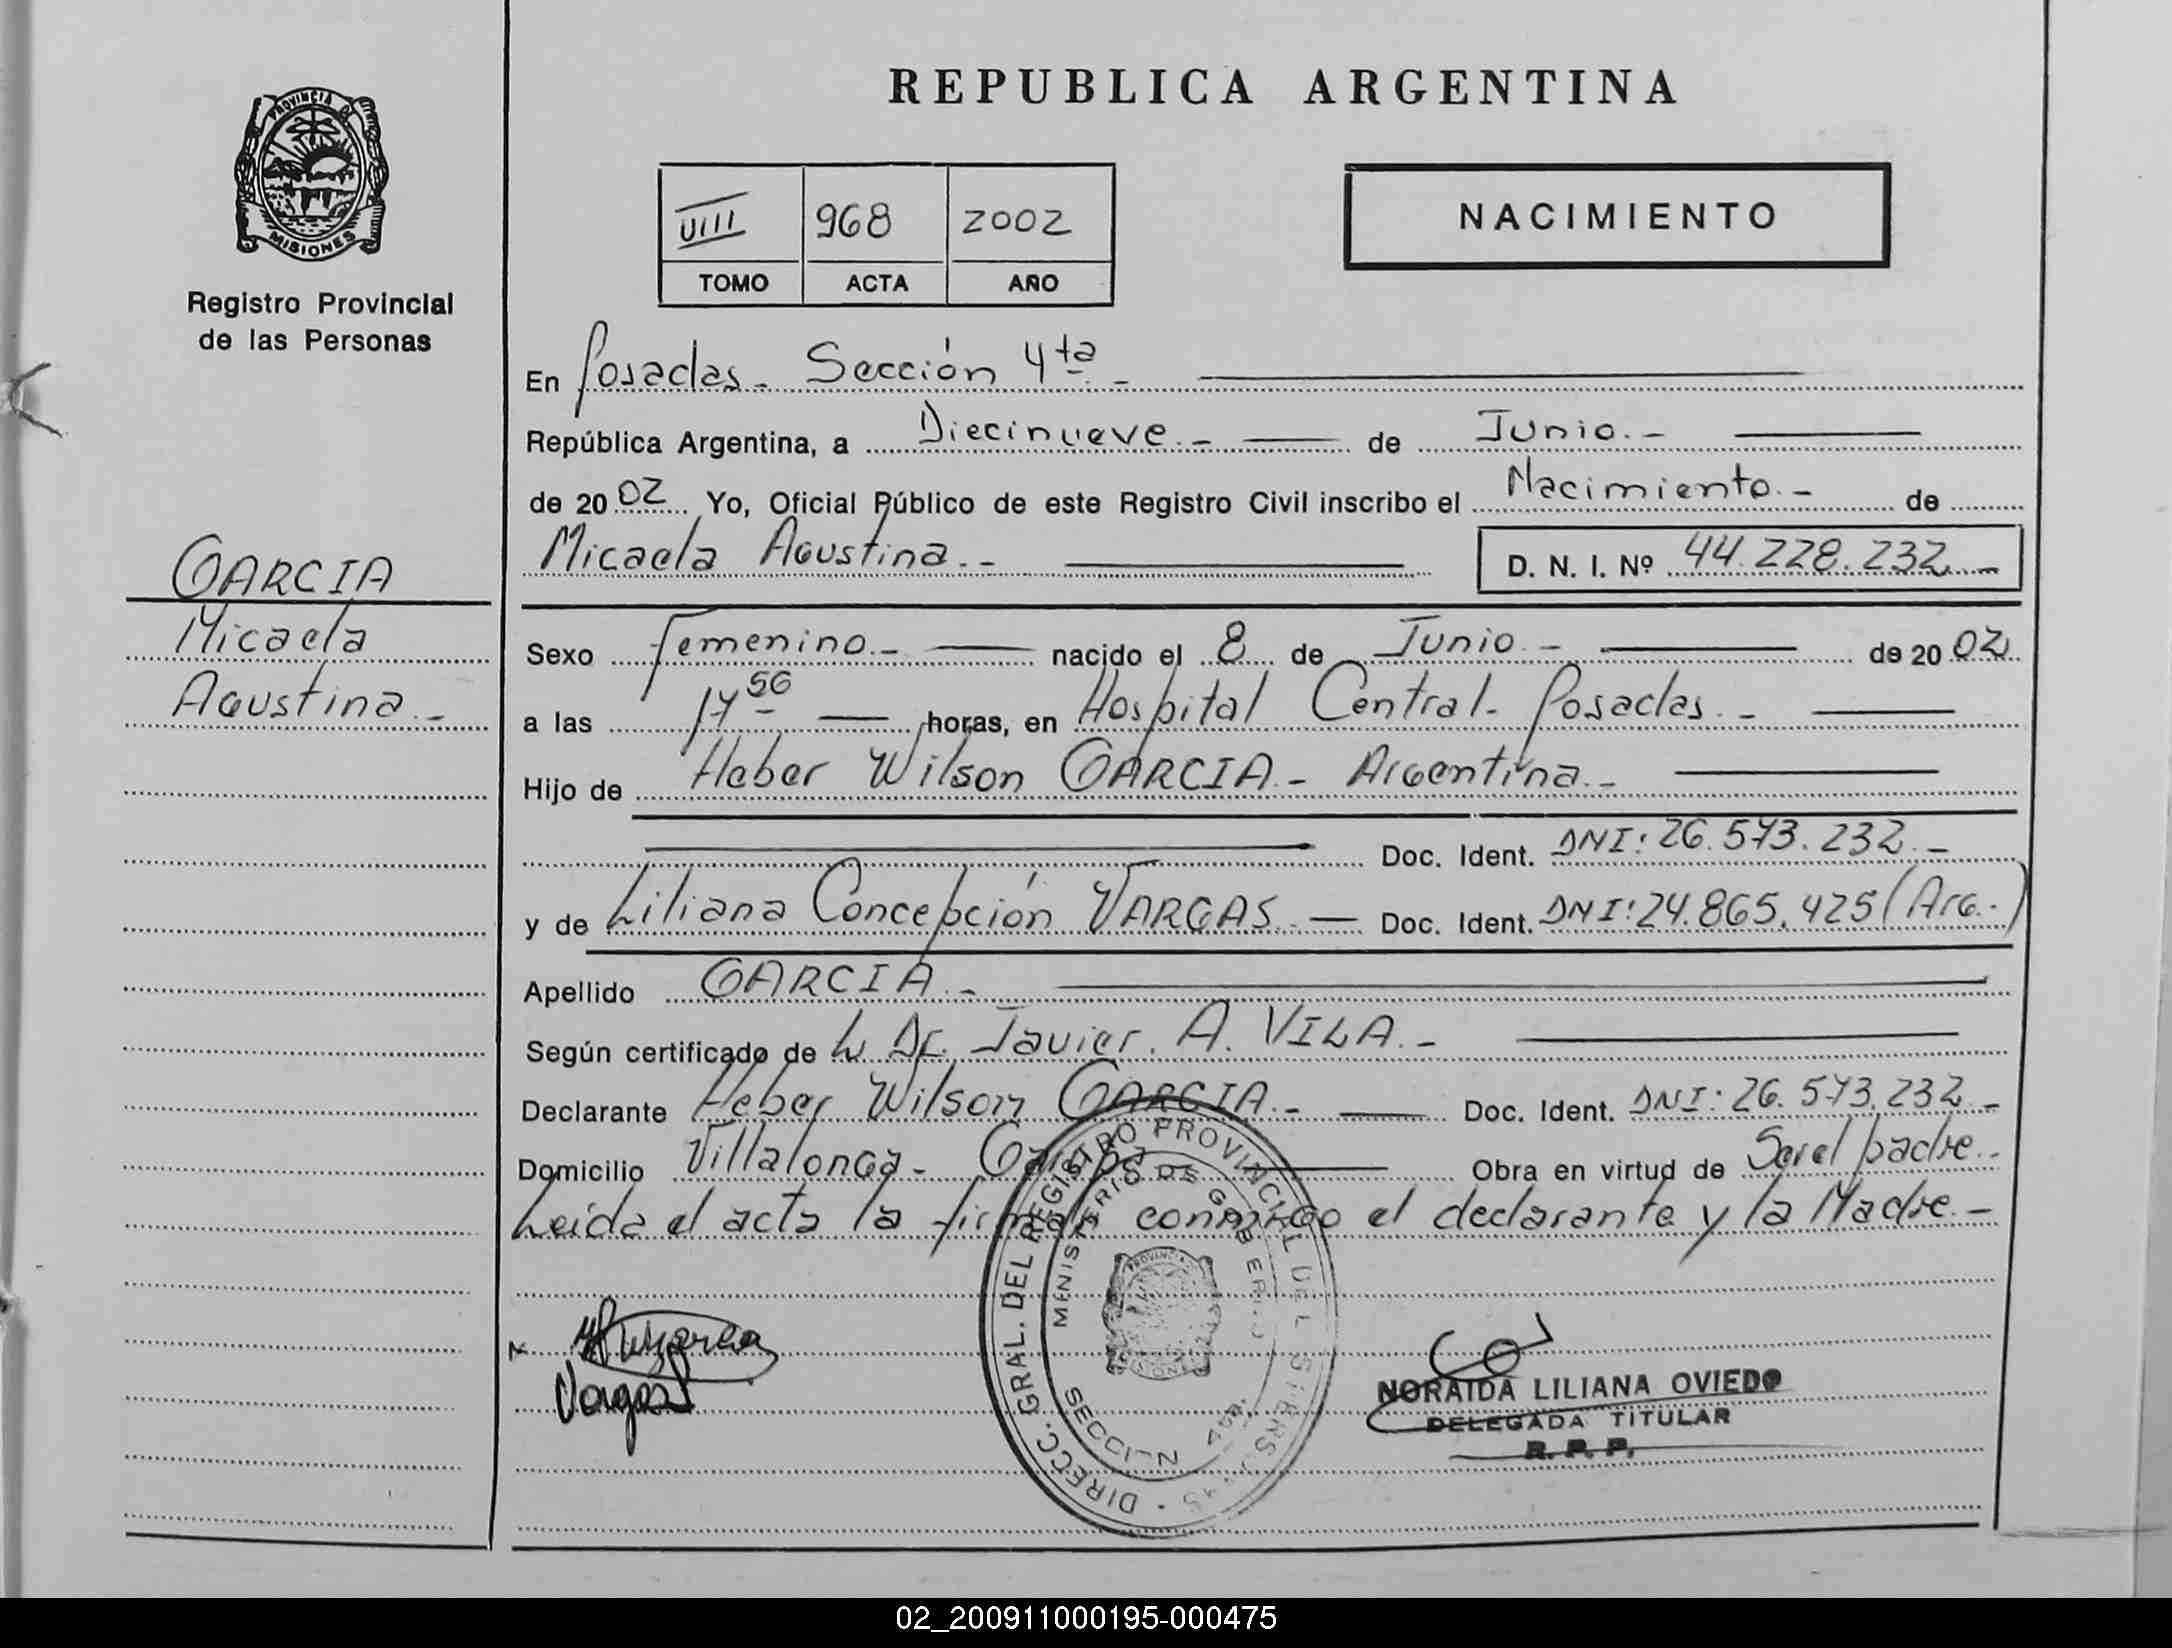 REPUBLICA ARGENTINA
PROVINCIA DE
MISIONES
Registro Provincial
de las Personas
VIII 968 2002
TOMO ACTA AÑO
NACIMIENTO
En Posadas - Sección 4ta -
República Argentina, a Diecinueve.- de Junio.-
de 2002 Yo, Oficial Público de este Registro Civil inscribo el Nacimiento.- de
Micaela Agustina.- D. N. I. Nº 44.228.232 -
GARCIA
Micaela
Agustina.-
Sexo Femenino.- nacido el 8 de Junio - de 2002
a las 17 56 horas, en Hospital Central - Posadas.-
Hijo de Heber Wilson GARCIA - Argentina.-
Doc. Ident. DNI: 26.573.232.-
y de Liliana Concepción VARGAS. - Doc. Ident. DNI: 24.865.425 (Arg.-)
Apellido GARCIA.-
Según certificado de Dr. Javier. A. VILA.-
Declarante Heber Wilson GARCIA.- Doc. Ident. DNI: 26.573.232 -
Domicilio Villalonga - Garupá Obra en virtud de Ser el padre.-
Leida el acta la firman conmigo el declarante y la Madre.-
DIRECC. GRAL. DEL REGISTRO PROVINCIAL DE L
MINISTERIO DE GOBIERNO
SECCION 4ta.
Vargas
NORAIDA LILIANA OVIEDO
DELEGADA TITULAR
R. P. P.
02_200911000195-000475